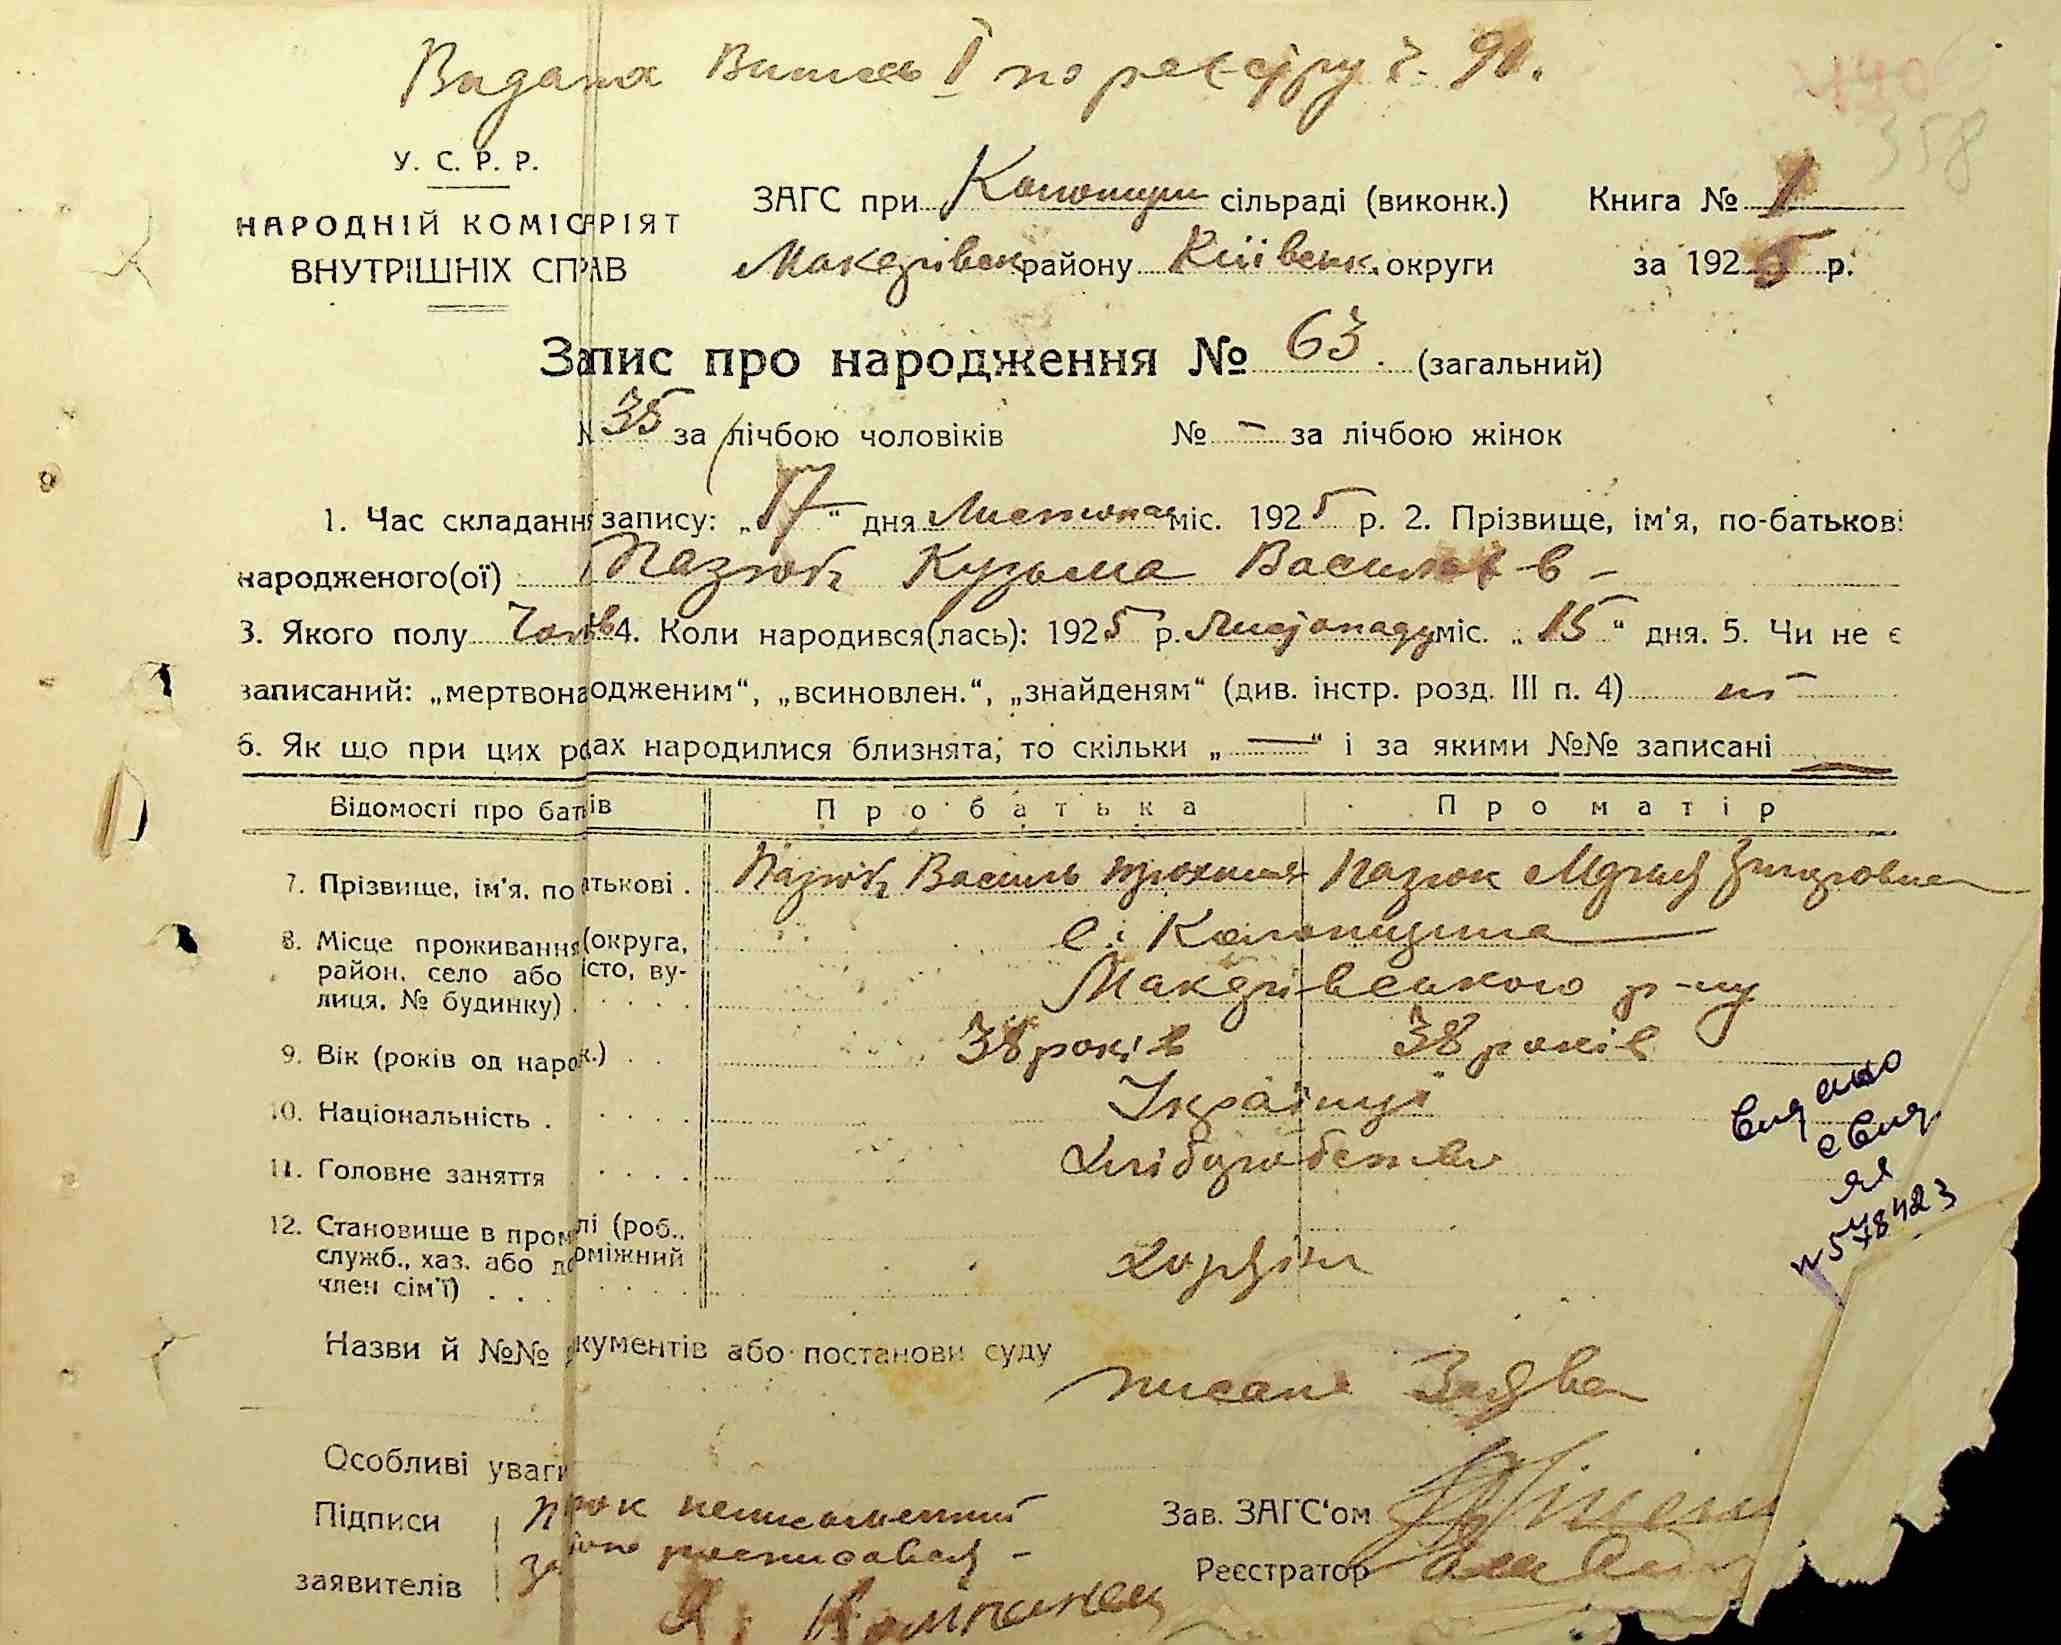 Видана Випись І по реєстру č. 90.
140
358
У. С. Р. Р.
НАРОДНІЙ КОМІСАРІЯТ
ВНУТРІШНІХ СПРАВ
ЗАГС при Колонщин сільраді (виконк.) Книга № 1
Макарівськ району Київськ. округи за 1925 р.
Запис про народження № 63. (загальний)
№ 35 за лічбою чоловіків № - за лічбою жінок
1. Час складання запису: „17“ дня Листопад міс. 1925 р. 2. Прізвище, ім'я, по-батькові
народженого(ої) Пазюк Кузьма Васильов -
3. Якого полу Чолов 4. Коли народився(лась): 1925 р. Листопаду міс. „15“ дня. 5. Чи не є
записаний: „мертвонародженим“, „всиновлен.“, „знайденям“ (див. інстр. розд. III п. 4) ні
6. Як що при цих родах народилися близнята, то скільки „—“ і за якими №№ записані —
Відомості про батьків Про батька Про матір
7. Прізвище, ім'я, по батькові . Пазюк Василь Пазюк Марія
8. Місце проживання (округа, с. Колонщина
район, село або місто, ву- Макарівського р-ну
лиця, № будинку) . . . . .
9. Вік (років од народж.) . . 38 років 38 років
10. Національність . . . . . Українці
11. Головне заняття . . . . Хліборобство
12. Становище в промислі (роб.,
служб., хаз. або допоміжний
член сім'ї) . . . . . . .
видано
свид
яя
Назви й №№ документів або постанови суду
писана Заява
Особливі уваги
Підписи Пазюк неписьменний
заявителів За його росписався -
Я. Компанец
Зав. ЗАГС'ом
Реєстратор